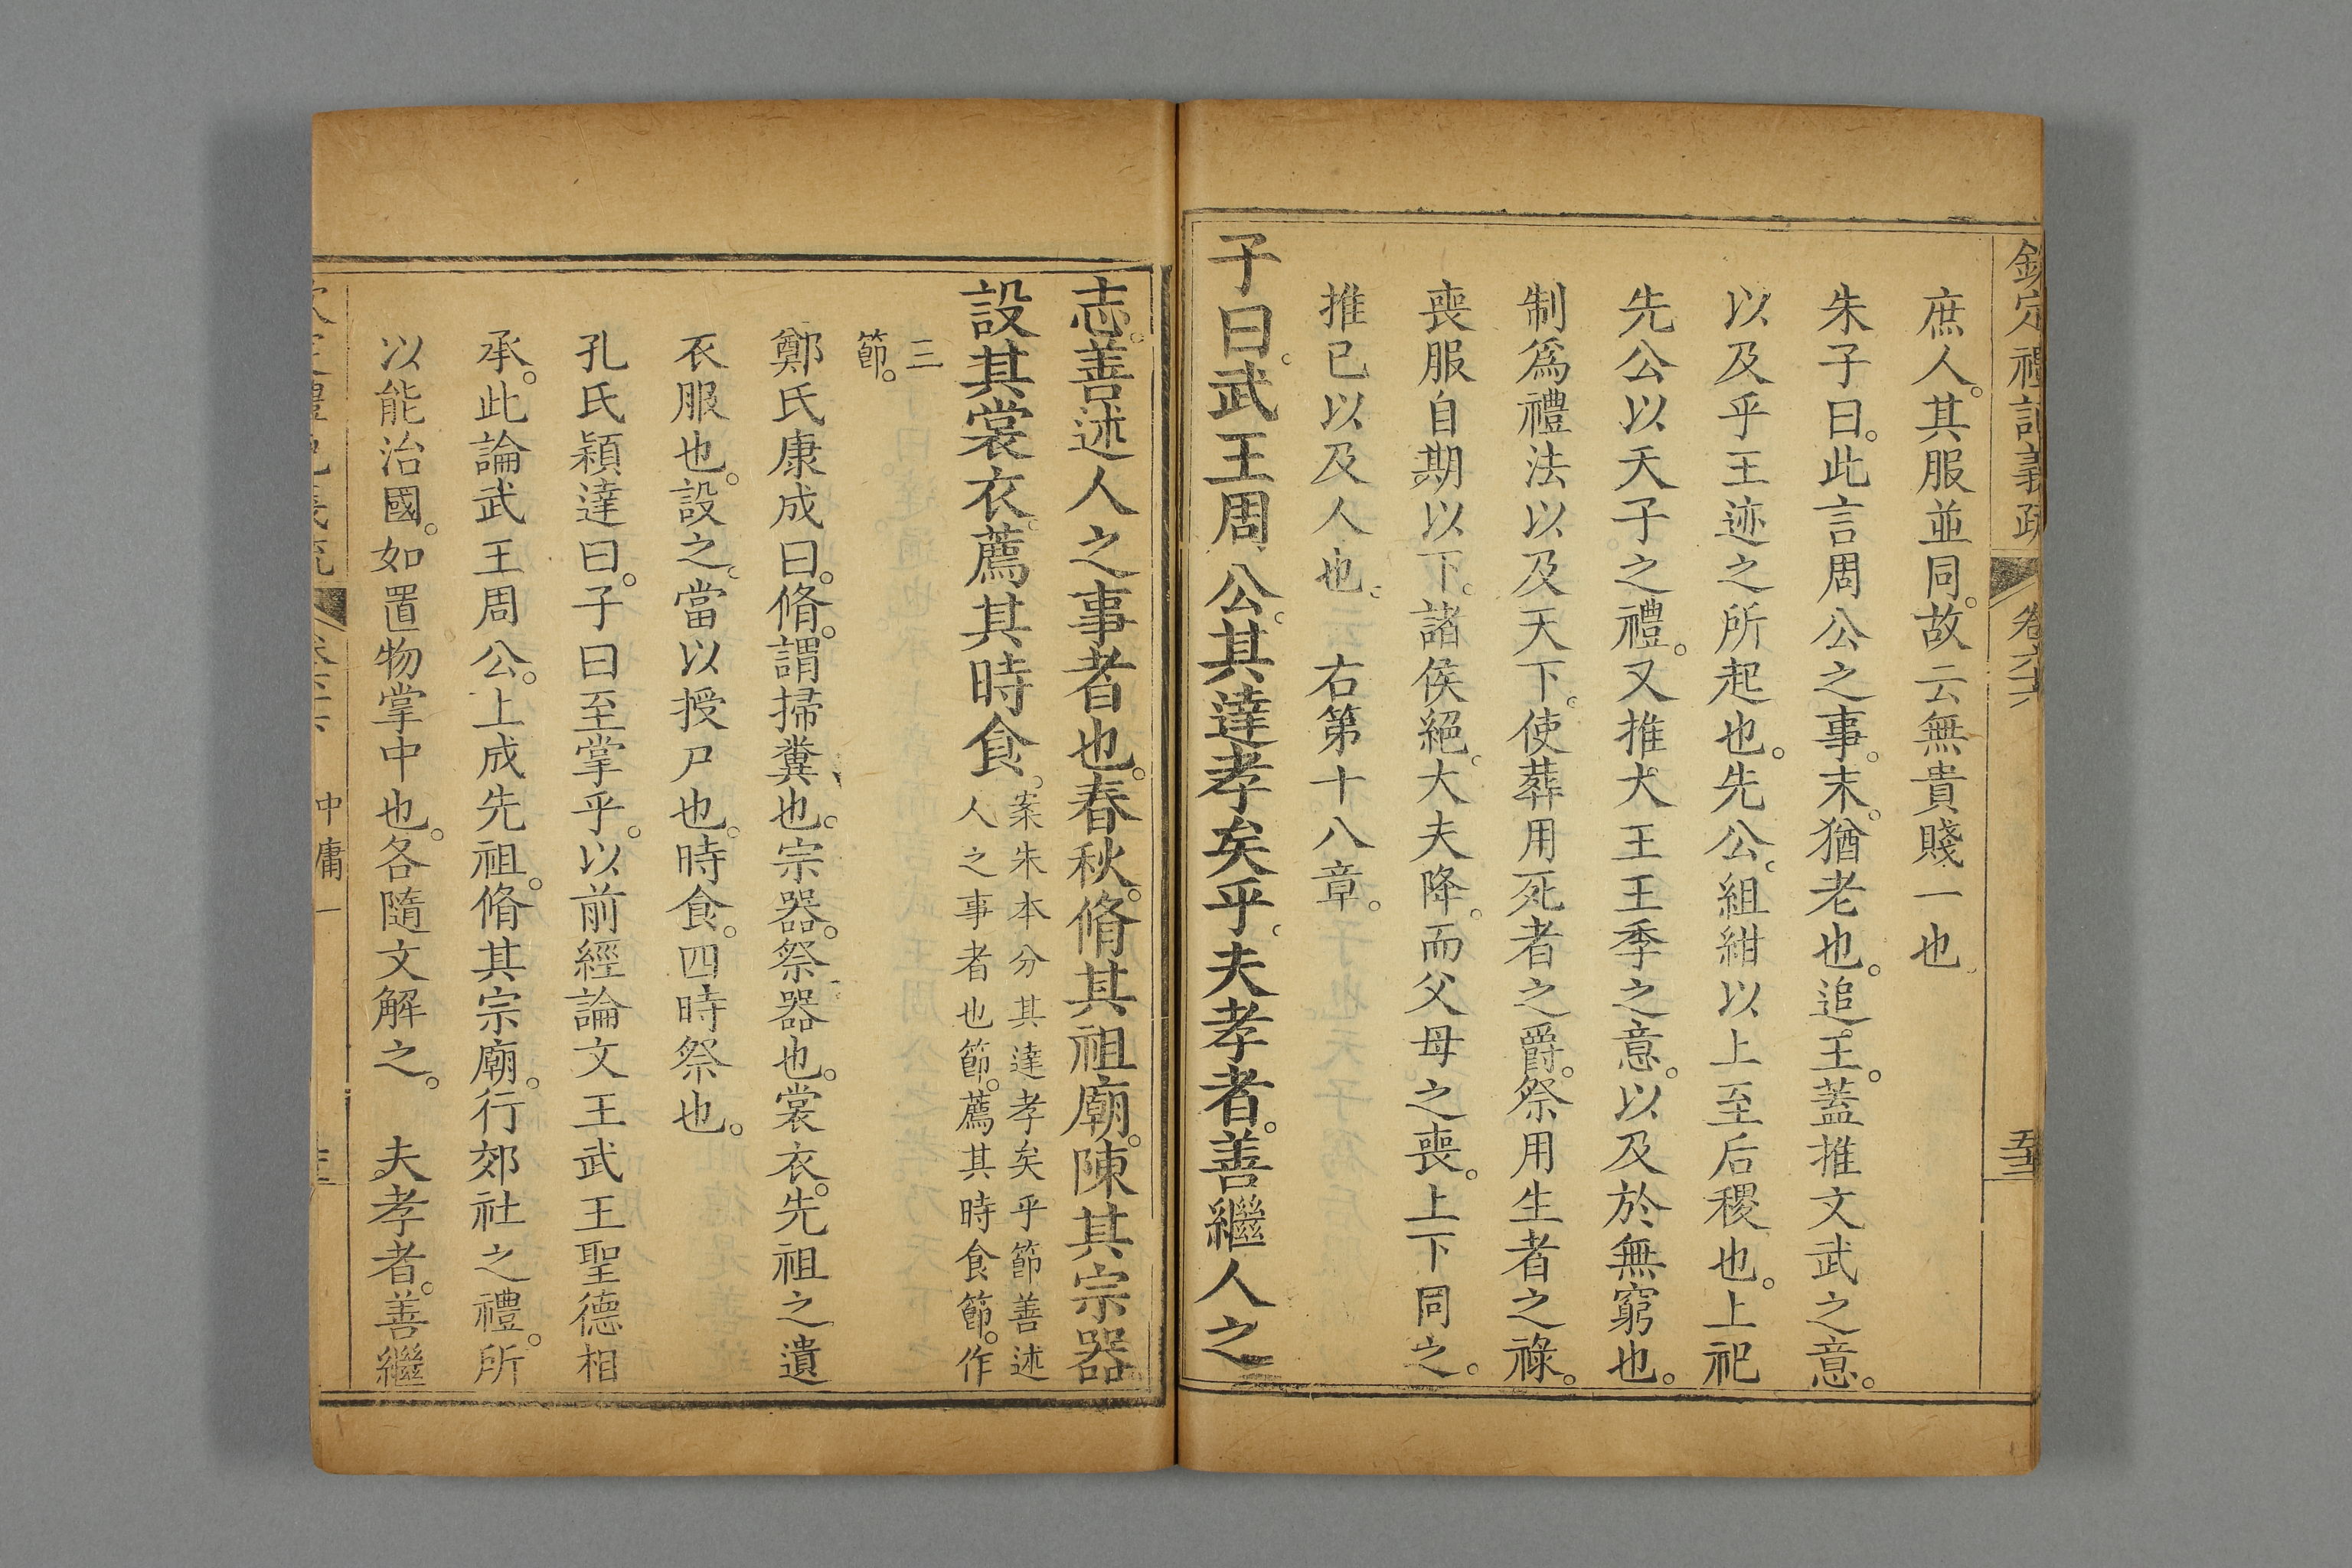 欽定禮記義疏 卷六十六
庶人。其服並同。故云無貴賤一也
朱子曰。此言周公之事。末。猶老也。追王。蓋推文武之意。
以及乎王迹之所起也。先公。組紺以上至后稷也。上祀
先公以天子之禮。又推大王王季之意。以及於無窮也。
制爲禮法以及天下。使葬用死者之爵。祭用生者之祿。
喪服自期以下。諸侯絕。大夫降。而父母之喪。上下同之。
推己以及人也。 右第十八章。
子曰。武王周公。其達孝矣乎。夫孝者。善繼人之
志。善述人之事者也。春秋。脩其祖廟。陳其宗器
設其裳衣。薦其時食。
案朱本分其達孝矣乎節善述
人之事者也節。薦其時食節。作
三
節。
鄭氏康成曰。脩。謂掃糞也。宗器。祭器也。裳衣。先祖之遺
衣服也。設之。當以授尸也。時食。四時祭也。
孔氏穎達曰。子曰至掌乎。以前經論文王武王聖德相
承。此論武王周公。上成先祖。脩其宗廟。行郊社之禮。所
以能治國。如置物掌中也。各隨文解之。 夫孝者。善繼
中庸一